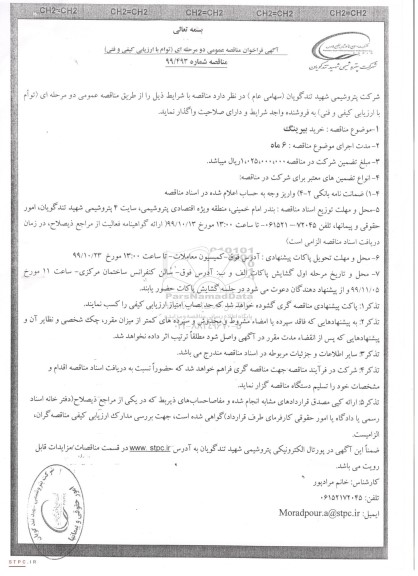 CH2=CH2 CH2=CH2 CH2=CH2 CH2=CH2 CH2=CH2
بسمه تعالی
آگهی فراخوان مناقصه عمومی دو مرحله ای (توأم با ارزیابی کیفی و فنی)
مناقصه شماره ۹۹/۴۹۳
شرکت پتروشیمی شهید تندگویان
شرکت پتروشیمی شهید تندگویان (سهامی عام ) در نظر دارد مناقصه با شرایط ذیل را از طریق مناقصه عمومی دو مرحله ای (توأم
با ارزیابی کیفی و فنی) به فروشنده واجد شرایط و دارای صلاحیت واگذار نماید.
۱-موضوع مناقصه : خرید بیرینگ
۲-مدت اجرای موضوع مناقصه : ۶ ماه
۳- مبلغ تضمین شرکت در مناقصه ۱,۰۲۵,۰۰۰,۰۰۰ریال میباشد.
۴-انواع تضمین های معتبر برای شرکت در مناقصه:
۴-۱) ضمانت نامه بانکی ۴-۲) واریز وجه به حساب اعلام شده در اسناد مناقصه
۵-محل و مهلت توزیع اسناد مناقصه : بندر امام خمینی، منطقه ویژه اقتصادی پتروشیمی، سایت ۴ پتروشیمی شهید تندگویان، امور
حقوقی و پیمانها، تلفن ۷۲۰۴۵-۰۶۱۵۲۱ تا ساعت ۱۳:۰۰ مورخ ۹۹/۱۰/۱۳ (ارائه گواهینامه فعالیت از مراجع ذیصلاح، در زمان
دریافت اسناد مناقصه الزامی است)
۶- محل و مهلت تحویل پاکات پیشنهادی : آدرس فوق-کمیسیون معاملات- تا ساعت ۱۳:۰۰ مورخ ۹۹/۱۰/۲۳
۷- محل و تاریخ مرحله اول گشایش پاکات الف و ب: آدرس فوق- سالن کنفرانس ساختمان مرکزی- ساعت ۱۱ مورخ
۹۹/۱۱/۰۵ و از پیشنهاد دهندگان دعوت می شود در جلسه گشایش پاکات حضور یابند.
ParsNamadData
تذکر۱: پاکت پیشنهادی مناقصه گری گشوده خواهد شد که حد نصاب امتیاز ارزیابی کیفی را کسب نمایند.
تذکر۲: به پیشنهادهایی که فاقد سپرده یا امضاء، مشروط و مخدوش و سپرده های کمتر از میزان مقرر، چک شخصی و نظایر آن و
پیشنهادهایی که پس از انقضاء مدت مقرر در آگهی واصل شود مطلقاً ترتیب اثر داده نخواهد شد.
تذکر۳: سایر اطلاعات و جزئیات مربوطه در اسناد مناقصه مندرج می باشد.
تذکر۴: شرکت در فرآیند مناقصه جهت مناقصه گری فراهم خواهد شد که حضوراً نسبت به دریافت اسناد مناقصه اقدام و
مشخصات خود را تسلیم دستگاه مناقصه گزار نماید.
تذکر۵: ارائه کپی مصدق قراردادهای مشابه انجام شده و مفاصاحساب‌های ذیربط که در یکی از مراجع ذیصلاح(دفتر خانه اسناد
رسمی یا دادگاه یا امور حقوقی کارفرمای طرف قرارداد)گواهی شده است، جهت بررسی مدارک ارزیابی کیفی مناقصه‌گران،
الزامیست.
ضمناً این آگهی در پورتال الکترونیکی پتروشیمی شهید تندگویان به آدرس www.stpc.ir در قسمت مناقصات/مزایدات قابل
رویت می باشد.
کارشناس: خانم مرادپور
تلفن: ۰۶۱۵۲۱۷۲۰۴۵
ایمیل: Moradpour.a@stpc.ir
STPC.IR